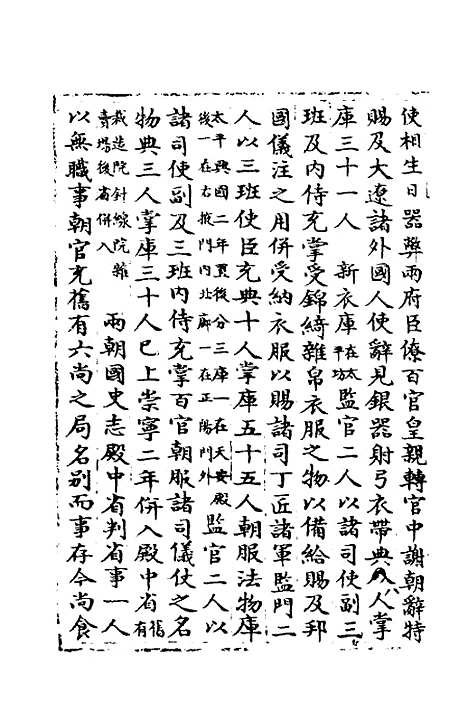 使相生日器弊兩府臣僚百官皇親轉官中謝朝辭特
賜及大遼諸外國人使辭見銀器射弓衣帶典八人掌
庫三十一人 新衣庫在太平坊監官二人以諸司使副三
班及内侍充掌受錦綺雜帛衣服之物以備給賜及邦
國儀注之用併受納衣服以賜諸司丁匠諸軍監門二
人以三班使臣充典十人掌庫五十五人朝服法物庫
太平興國二年置後分三庫一在天安殿
後一在右掖門内北廊一在正陽門外監官二人以
諸司使副及三班内侍充掌百官朝服諸司儀仗之名
物典三人掌庫三十人已上崇寧二年併入殿中省舊有
裁造院針線院雜
賣場後省併入 兩朝國史志殿中省判省事一人
以無職事朝官充舊有六尚之局名别而事存今尚食